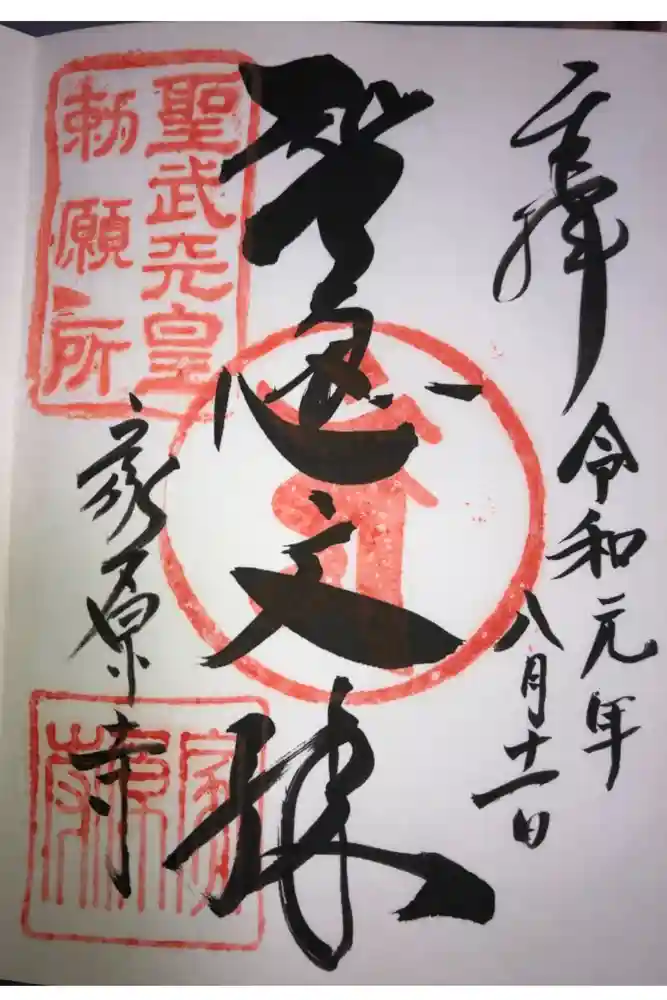 奉拝
令和元年
八月十一日
智恵文殊
家原寺
聖武天皇
勅願所
家原寺